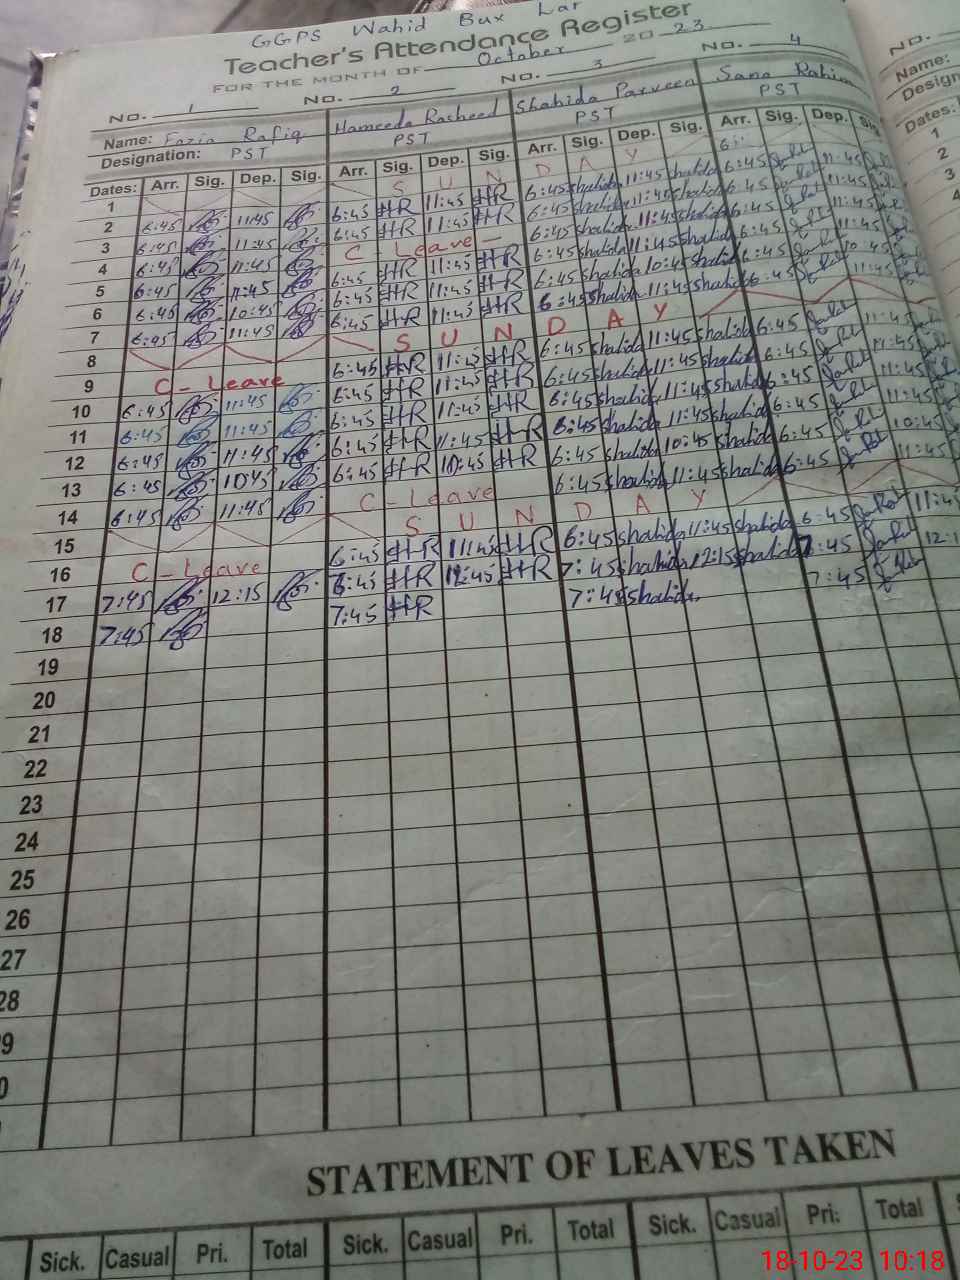 GGPS Wahid Bux Lar
Teacher's Attendance Register
FOR THE MONTH OF October 2023
NO. 1 NO. 2 NO. 3 NO. 4 NO.
Name: Fozia Rafiq Hameeda Rasheed Shahida Parveen Sana Rahim Name:
Designation: PST PST PST PST Design
Dates: Arr. Sig. Dep. Sig. Arr. Sig. Dep. Sig. Arr. Sig. Dep. Sig. Arr. Sig. Dep. Sig. Dates:
1 S U N D A Y 1
2 6:45 11:45 6:45 HR 11:45 HR 6:45 Shahida 11:45 Shahida 6:45 11:45 2
3 6:45 11:45 6:45 HR 11:45 HR 6:45 Shahida 11:45 Shahida 6:45 11:45 3
4 6:45 11:45 C - Leave - 6:45 Shahida 11:45 Shahida 6:45 11:45 4
5 6:45 11:45 6:45 HR 11:45 HR 6:45 Shahida 11:45 Shahida 6:45 11:45
6 6:45 10:45 6:45 HR 11:45 HR 6:45 Shahida 10:45 Shahida 6:45 10:45
7 6:45 11:45 6:45 HR 11:45 HR 6:45 Shahida 11:45 Shahida 6:45 11:45
8 S U N D A Y
9 C - Leave 6:45 HR 11:45 HR 6:45 Shahida 11:45 Shahida 6:45 11:45
10 6:45 11:45 6:45 HR 11:45 HR 6:45 Shahida 11:45 Shahida 6:45 11:45
11 6:45 11:45 6:45 HR 11:45 HR 6:45 Shahida 11:45 Shahida 6:45 11:45
12 6:45 11:45 6:45 HR 11:45 HR 6:45 Shahida 11:45 Shahida 6:45 11:45
13 6:45 10:45 6:45 HR 10:45 HR 6:45 Shahida 10:45 Shahida 6:45 10:45
14 6:45 11:45 C - Leave 6:45 Shahida 11:45 Shahida 6:45 11:45
15 S U N D A Y
16 C - Leave 6:45 HR 11:45 HR 6:45 Shahida 11:45 Shahida 6:45 11:45
17 7:45 12:15 7:45 HR 12:45 HR 7:45 Shahida 12:15 Shahida 7:45 12:1
18 7:45 7:45 HR 7:45 Shahida 7:45
19
20
21
22
23
24
25
26
27
28
9
0
STATEMENT OF LEAVES TAKEN
Sick. Casual Pri. Total Sick. Casual Pri. Total Sick. Casual Pri: Total S
18-10-23 10:18